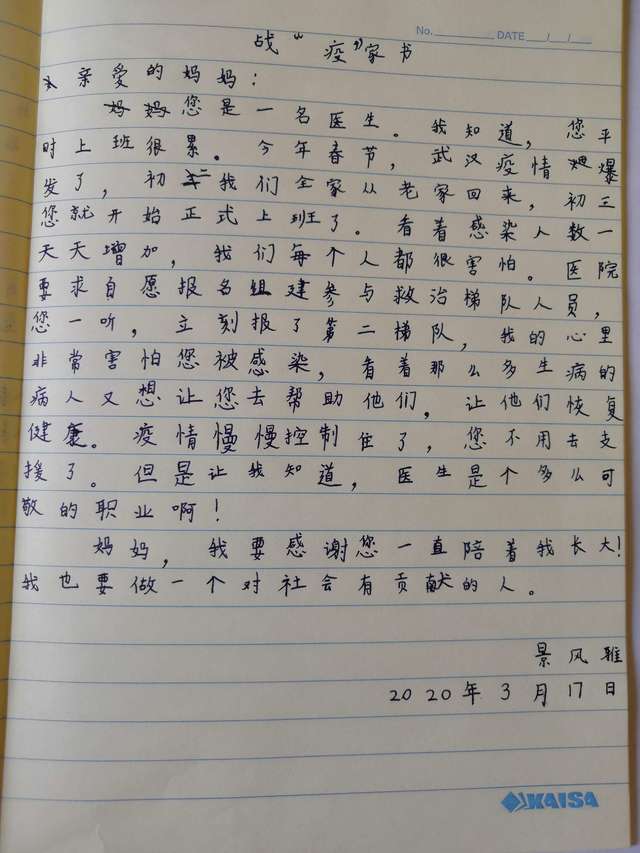 No. DATE / /
战“疫”家书
亲爱的妈妈：
您是一名医生。我知道，您平
时上班很累。今年春节，武汉疫情爆
发了，初二我们全家从老家回来，初三
您就开始正式上班了。看着感染人数一
天天增加，我们每个人都很害怕。医院
要求自愿报名组建参与救治梯队人员，
您一听，立刻报了第二梯队，我的心里
非常害怕您被感染，看着那么多生病的
病人又想让您去帮助他们，让他们恢复
健康。疫情慢慢控制住了，您不用去支
援了。但是让我知道，医生是个多么可
敬的职业啊！
妈妈，我要感谢您一直陪着我长大！
我也要做一个对社会有贡献的人。
景风雅
2020年3月17日
KAISA